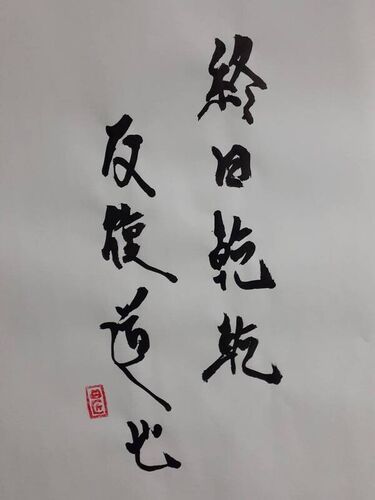 終日乾乾
反復道也